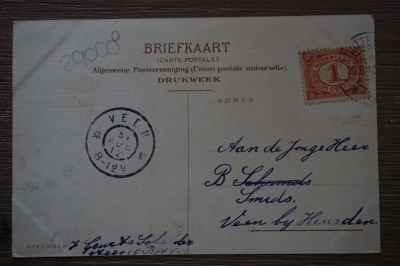 29008
BRIEFKAART
(CARTE POSTALE)
Algemeene Postvereeniging (Union postale universelle)
DRUKWERK
NEDERLAND
1
CENT
ADRES
VEEN
8-12V
Aan de Jonge Heer
B Schmids
Smids.
Veen by Heusden.
AFZENDER